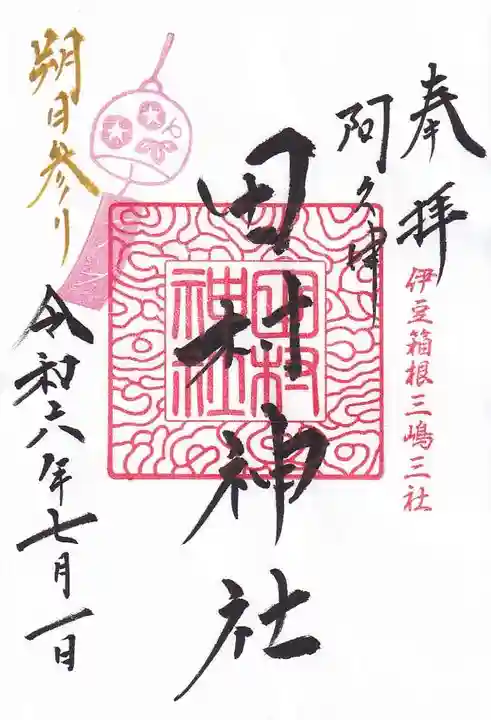 奉拝
伊豆箱根三嶋三社
阿久津
田村神社
田村
神社
朔日参り
令和六年七月一日